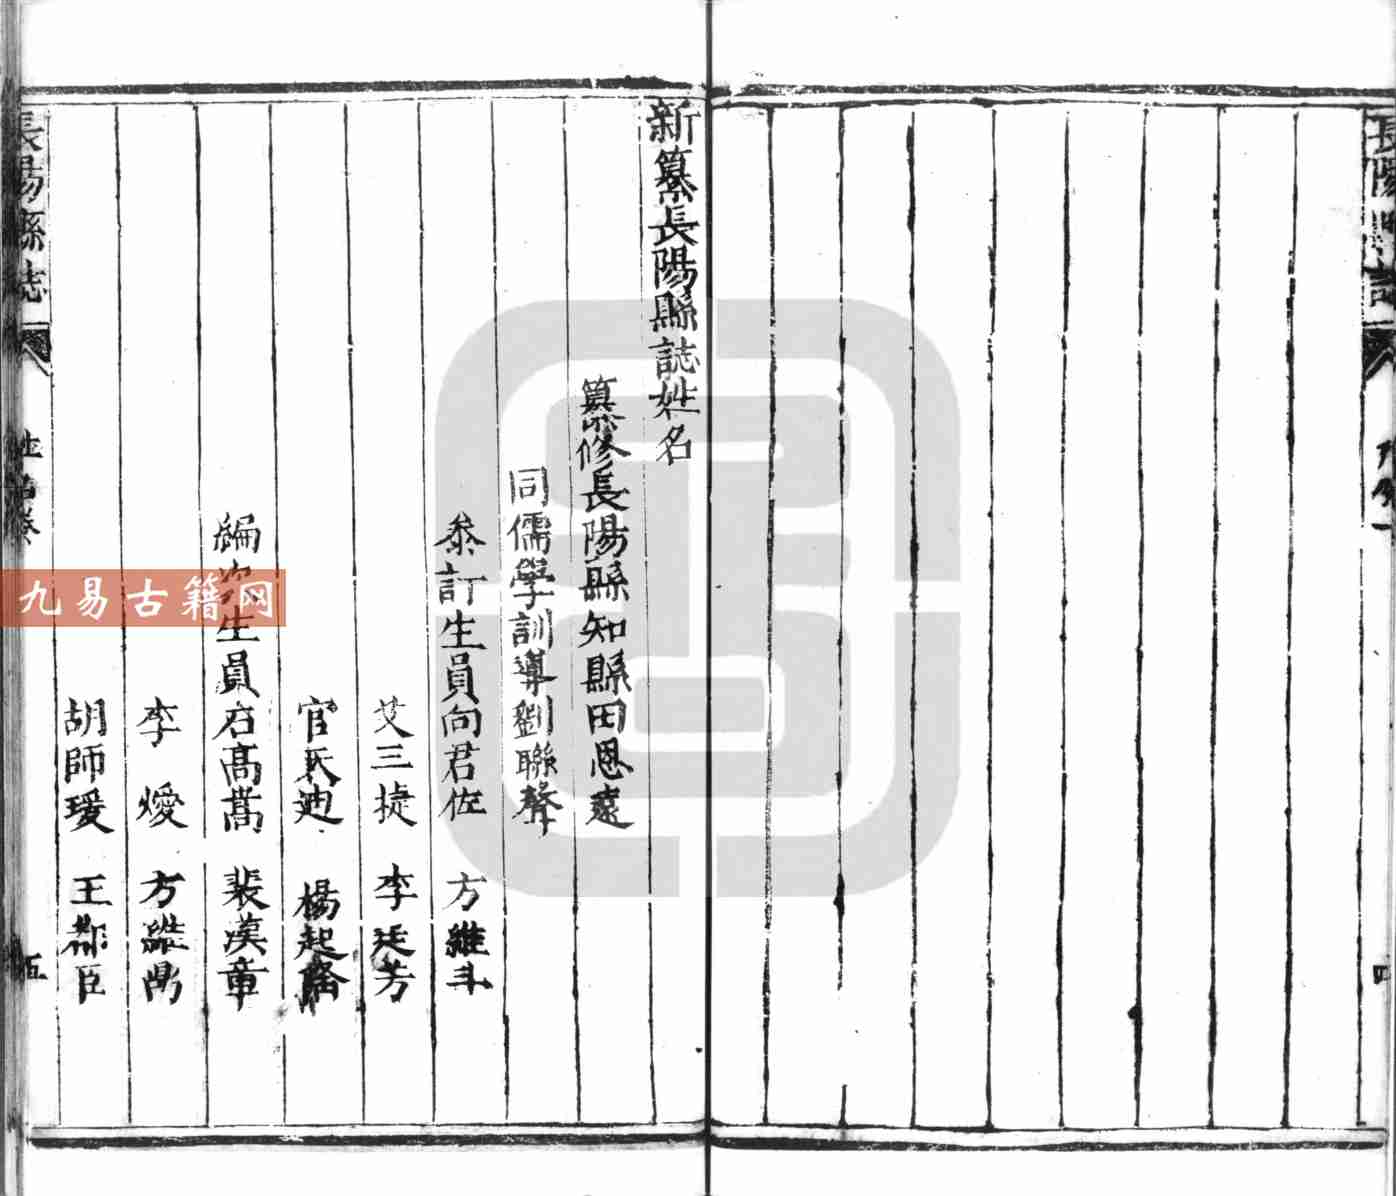 新纂長陽縣誌姓名
纂修長陽縣知縣田恩遠
同儒學訓導劉聯聲
叅訂生員向君佐 方維斗
艾三捷 李廷芳
官民迪 楊起
編次生員石高嵩 裴漢章
李燰 方維鼎
胡師瑗 王都臣
長陽縣誌 姓名 五
長陽 四
九易古籍网